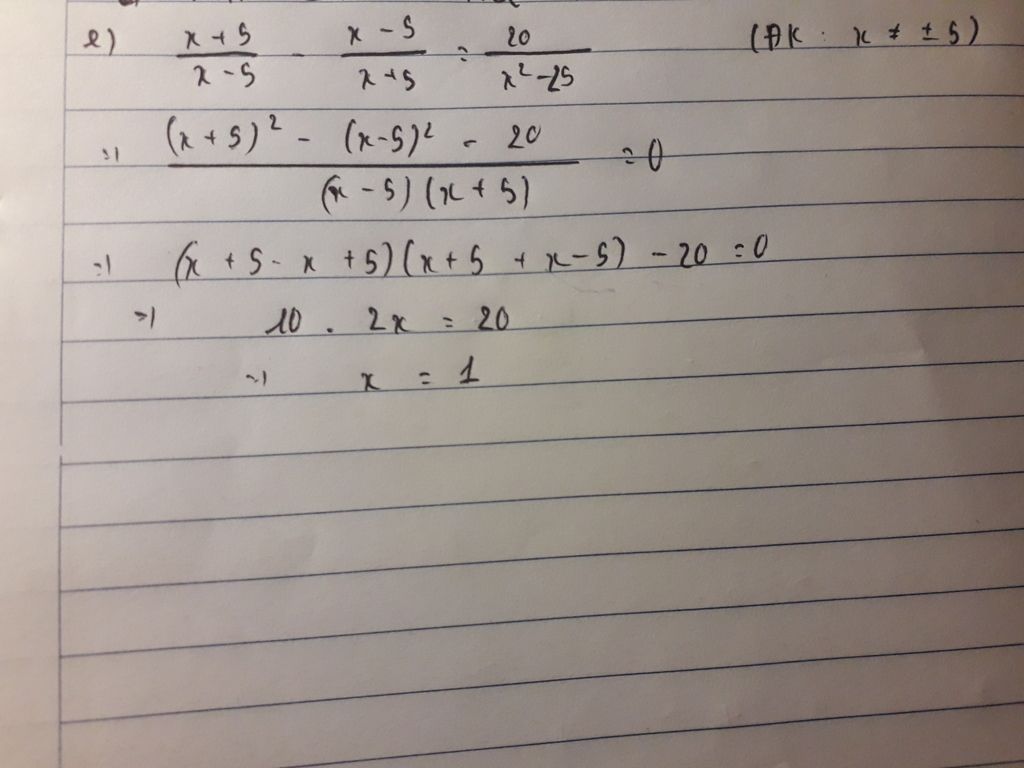 e) \frac{x+5}{x-5} - \frac{x-5}{x+5} = \frac{20}{x^2-25} (ĐK: x ≠ ±5)
=> \frac{(x+5)^2 - (x-5)^2 - 20}{(x-5)(x+5)} = 0
=> (x+5-x+5)(x+5+x-5) - 20 = 0
=> 10 . 2x = 20
=> x = 1